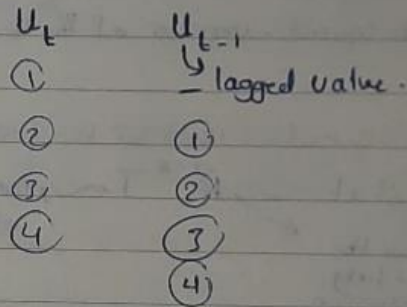 Ut Ut-1
① – lagged value.
② ①
③ ②
④ ③
④